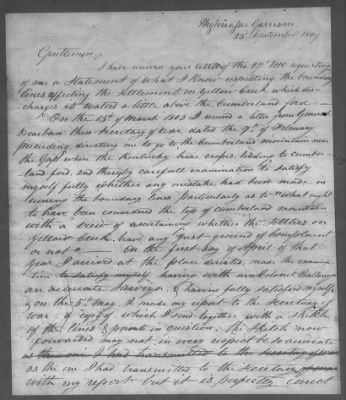 Highwassee Garrison
25 September 1809
Gentlemen,
I have received your letter of the 27th Ult requesting
of me a Statement of what I know respecting the boundary
lines affecting the Settlement on Yellow Creek which dis-
charges its waters a little above the Cumberland ford —
On the 13th of March 1803 I received a letter from General
Dearborn then Secretary of War dated the 7th of February
preceding directing me to go to the Cumberland mountain near
the Gap where the Kentucky line crosses leading to Cumber-
land ford, and thereby careful examination to satisfy
myself fully whether any mistake had been made in
running the boundary lines particularly as to what ought
to have been considered the top of Cumberland mountain
with a view of ascertaining whether the settlers on
Yellow Creek have any just ground of complaint
or not — on the first day of April of that
year I arrived at the place directed, made the examina
tion to satisfy myself having with me Colonel
an accurate Surveyor, & having fully satisfied myself
& on the 5th May I made my report to the Secretary of
war – a copy of which I send together with a sketch
of the lines & points in question. The sketch now
forwarded may not in every respect be so accurate
as the one I had transmitted to the Secretary of war
as the one I had transmitted to the Secretary
with my report but it is perfectly correct